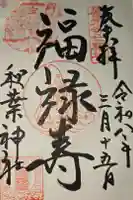 奉拝
令和八年
三月十五日
福禄寿
和業神社